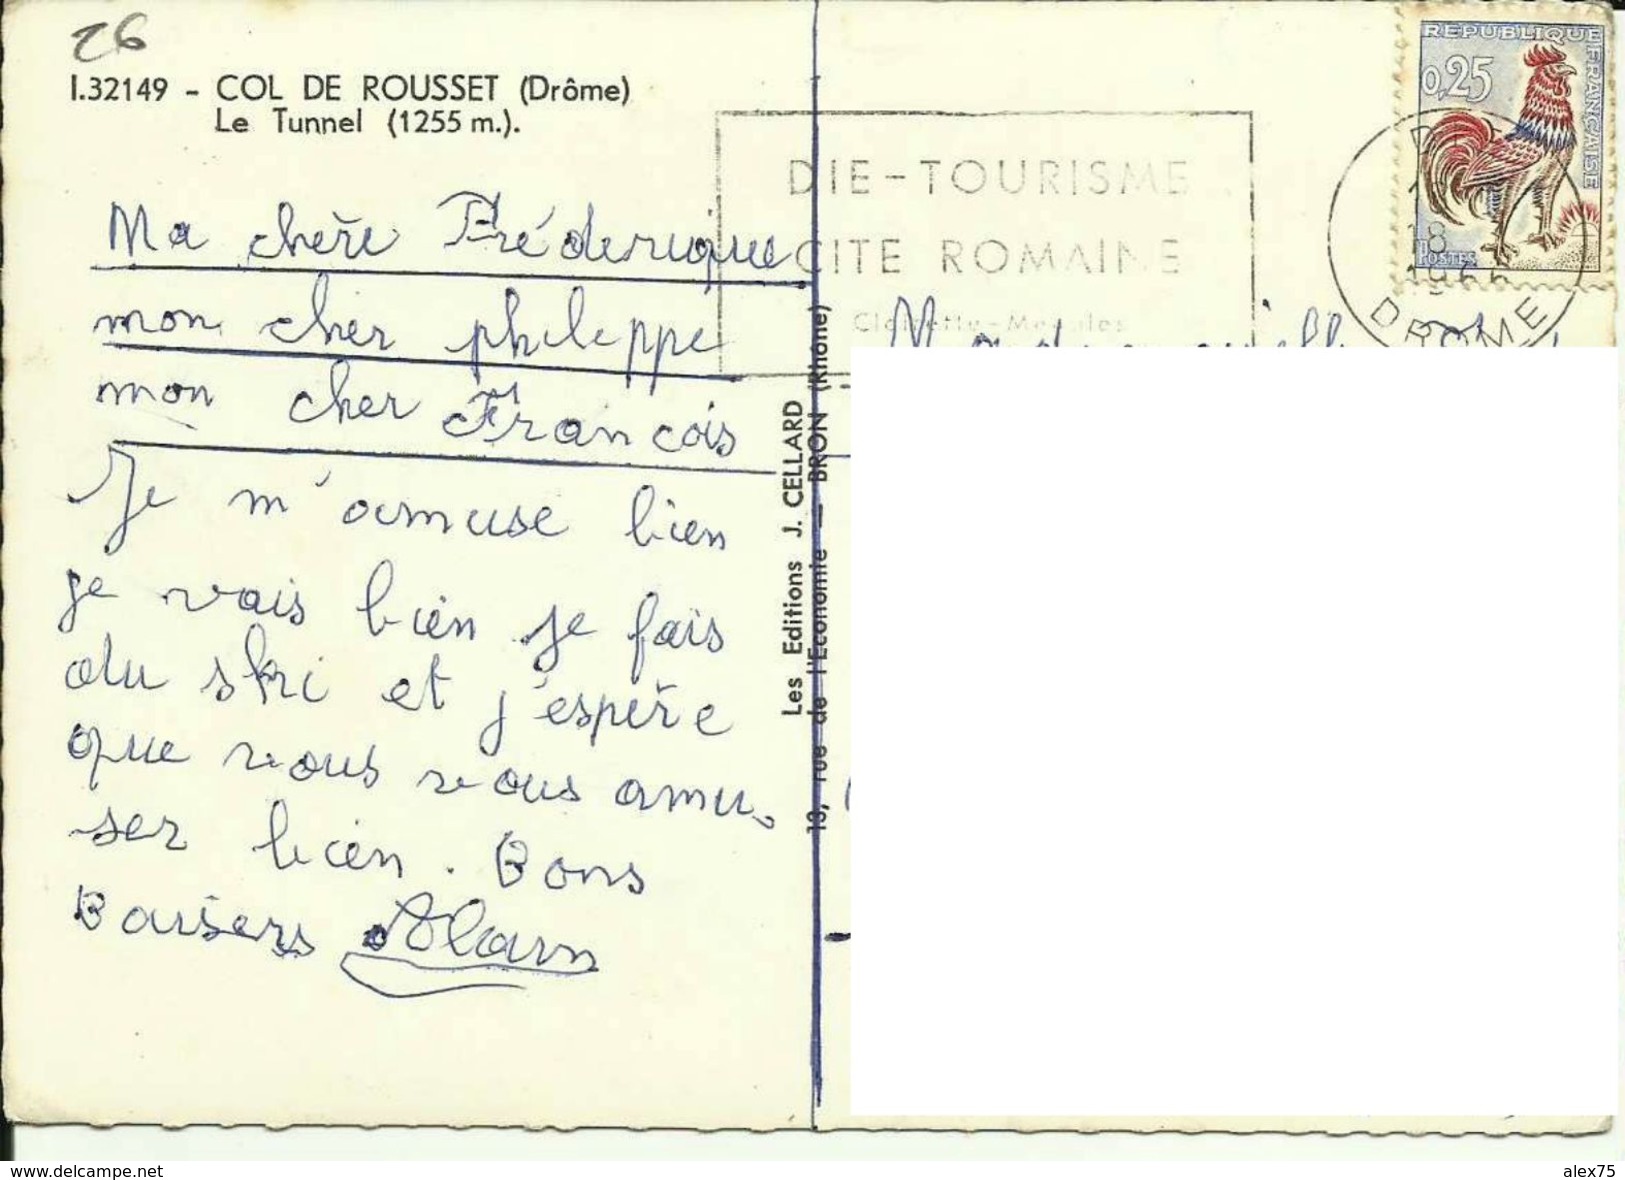 26
I.32149 - COL DE ROUSSET (Drôme)
Le Tunnel (1255 m.).
Ma chère Frédérique
mon cher philippe
mon cher François
Je m'amuse bien
je vais bien je fais
du ski et j'espère
que vous vous amu-
ser bien. Bons
Baisers Alain
Les Editions J. CELLARD
13, rue de l'Economie — BRON (Rhône)
DIE-TOURISME
CITE ROMAINE
Clairette-Meubles
REPUBLIQUE FRANÇAISE
0,25
POSTES
18
DROME
Mademoiselle
www.delcampe.net
alex75